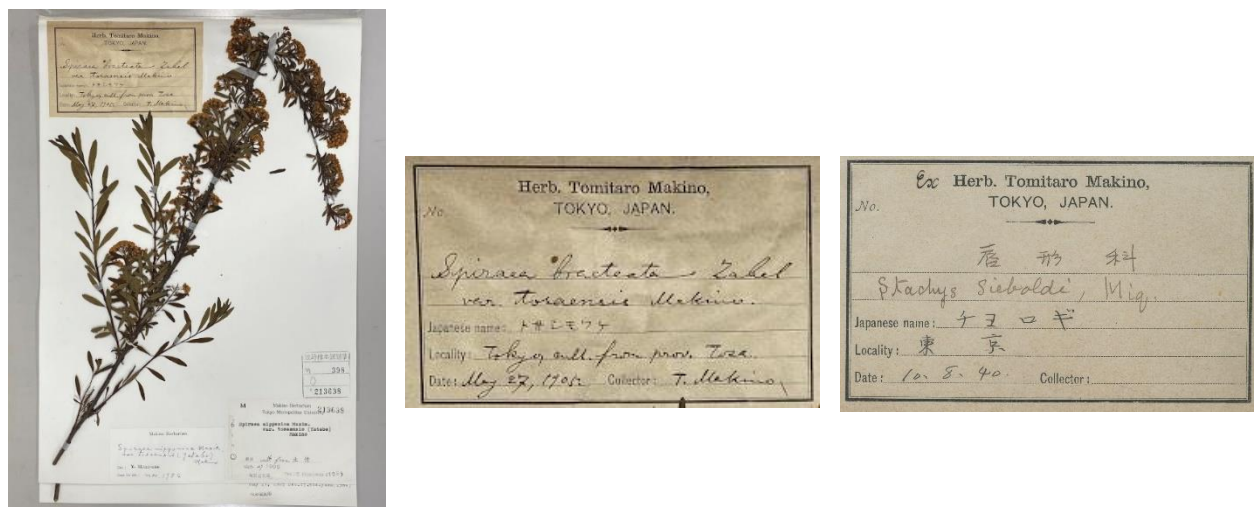 Herb. Tomitaro Makino,
TOKYO, JAPAN.
Spiraea bracteata Zabel
var. tosaensis Makino.
Tokyo, cult. from prov. Tosa
May 27, 1905. T. Makino
394
213638
Makino Herbarium
213638
Spiraea nipponica Maxim.
var. tosaensis (Yatabe)
Makino
Makino Herbarium
Spiraea nipponica Maxim.
var. tosaensis (Yatabe)
Makino
Herb. Tomitaro Makino,
TOKYO, JAPAN.
No.
Spiraea bracteata Zabel
var. tosaensis Makino.
Japanese name: トサシモツケ
Locality: Tokyo, cult. from prov. Tosa.
Date: May 27, 1905. Collector: T. Makino
Ex Herb. Tomitaro Makino,
TOKYO, JAPAN.
No.
唇形科
Stachys Sieboldi, Miq.
Japanese name: チョロギ
Locality: 東京
Date: 10. 8. 40. Collector: